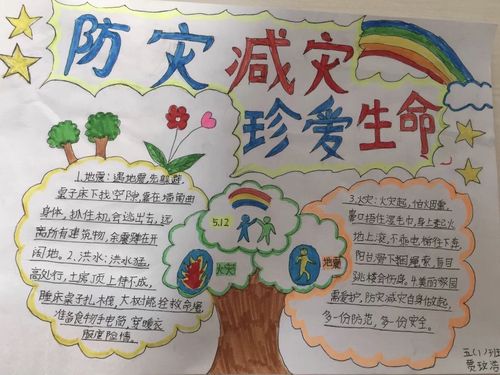 防灾减灾
珍爱生命
1.地震:遇地震,先躲避,
桌子床下找空隙,靠在墙角曲
身体,抓住机会逃出去,远
离所有建筑物,余震蹲在开
阔地。2.洪水:洪水猛,
高处行,土房顶上待不成,
睡床桌子扎木筏,大树能拴救命绳,
准备食物手电筒,穿暖衣
服度险情。
5.12
火灾
地震
3.火灾:火灾起,怕烟熏,
鼻口捂住湿毛巾,身上起火
地上滚,不乘电梯往下走,
阳台滑下捆绳索,盲目
跳楼会伤身。4.美丽家园
需爱护,防灾减灾自身做起,
多一份防范,多一份安全。
五(1)班